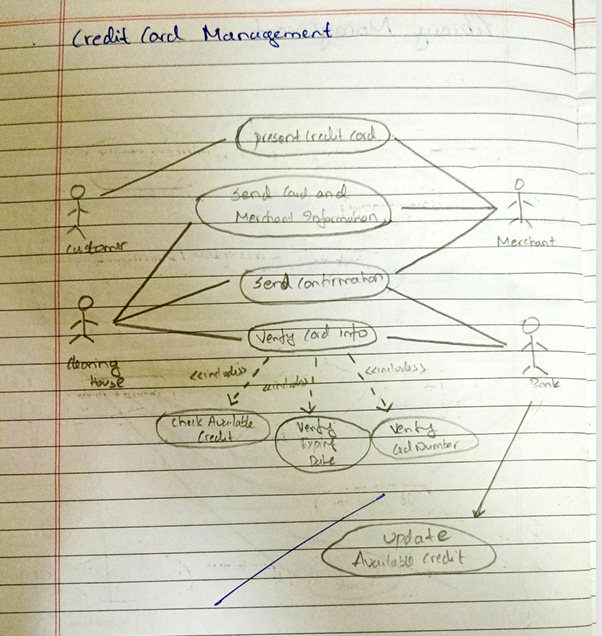 Credit Card Management
present credit card
Send Card and
Merchant Information
Customer
Merchant
Send Confirmation
Verify Card info
Clearing
House
Bank
<<includes>>
<<includes>>
<<includes>>
Check Available
Credit
Verify
Expiry
Date
Verify
Card Number
Update
Available Credit